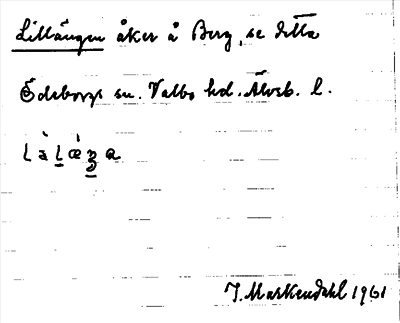 Lillängen åker å Berg, se detta
Ödeborgs sn. Valbo hd. Älvsb. l.
J. Markendahl 1961